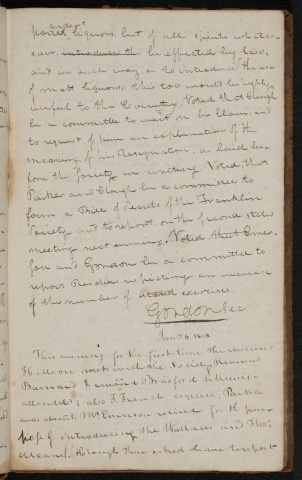 ardent
liquors but of all spirits whatso-
ever, introduced be effected by law,
and in such way as to introduce the use
of malt liquors; this too would be highly
useful to the Country. Voted that Clough
be a committee to wait on br and
to request of him an explanation of the
meaning of his Resignation, & laid be-
fore the Society in writing. Voted that
Parker and Clough be a committee to
form a Bill of Debts of the Franklin
Society and to report on the second stated
meeting next ensuing. Voted that Emer-
son and Gordon be a committee to
report Resolves respecting an increase
of the number of stated exercises.
Gordon Sec
Jan 6
This evening for the first time the
met with the Society. Messrs
Barnard & Bradford likewise
attended; also T French esquire. Parker
was absent. Mr Emerson retired for the pur-
pose of introducing the Wallaces and Tho.
Means. Clough then asked leave to report